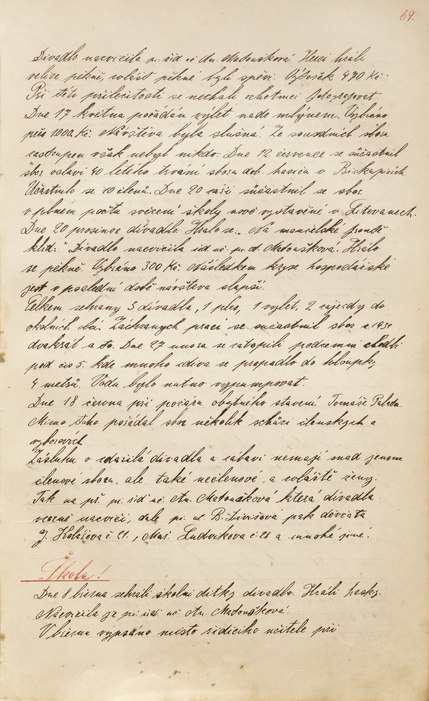 69.
Divadlo nacvičila pí. říd. uč. An. Matoušková. Herci hráli
velice pěkně, zvlášť pěkné byly zpěvy. Výtěžek 490 Kč.
Při této příležitosti se nechali ochotníci fotografovat.
Dne 17 května pořádán výlet nade mlýnem. Vybráno
přes 1000 Kč. Návštěva byla slušná. Ze sousedních sborů
zastoupen však nebyl nikdo. Dne 12 července se súčastnil
sbor oslavy 40 letého trvání sboru dob. hasičů v Biskupicích.
Účastnilo se 10 členů. Dne 20 září súčastnil se sbor
v plném počtu svěcení školy nově vystavěné v Litovanech.
Dne 20 prosince divadlo. Hrálo se „Na manželské frontě
klid." Divadlo nacvičila říd. uč. pí. A. Matoušková. Hrálo
se pěkně. Vybráno 300 Kč. Následkem kryse hospodářské
jest v poslední době návštěva slabší.
Celkem sehrány 3 divadla, 1 ples, 1 výlet, 2 zájezdy do
okolních obcí. Záchranných prací se súčastnil sbor v r. 1931
dvakrát a to: Dne 27 února se zatopilo podzemní
pod čís 5. kde mnoho zdiva se propadlo do hloubky
4 metrů. Vodu bylo nutno vypumpovat.
Dne 18 června při požáru obytného stavení Tomáše
Mimo toho pořádal sbor několik schůzí členských a
výborových.
Zásluhu o zdařilá divadla a zábavy nemají snad jenom
členové sboru, ale také nečlenové, a zvláště ženy.
Tak na př. pí. říd. uč. An. Matoušková která divadla
vzorně nacvičí, dále pí. ul. B. pak děvčata
J. č 21., Mar. č 21 a mnohé jiné.
Škola!
Dne 8 března sehráli školní dítky divadlo. Hráli hezky.
Nacvičila je pí. říd. uč. An. Matoušková.
V březnu vypsáno místo řídícího učitele při